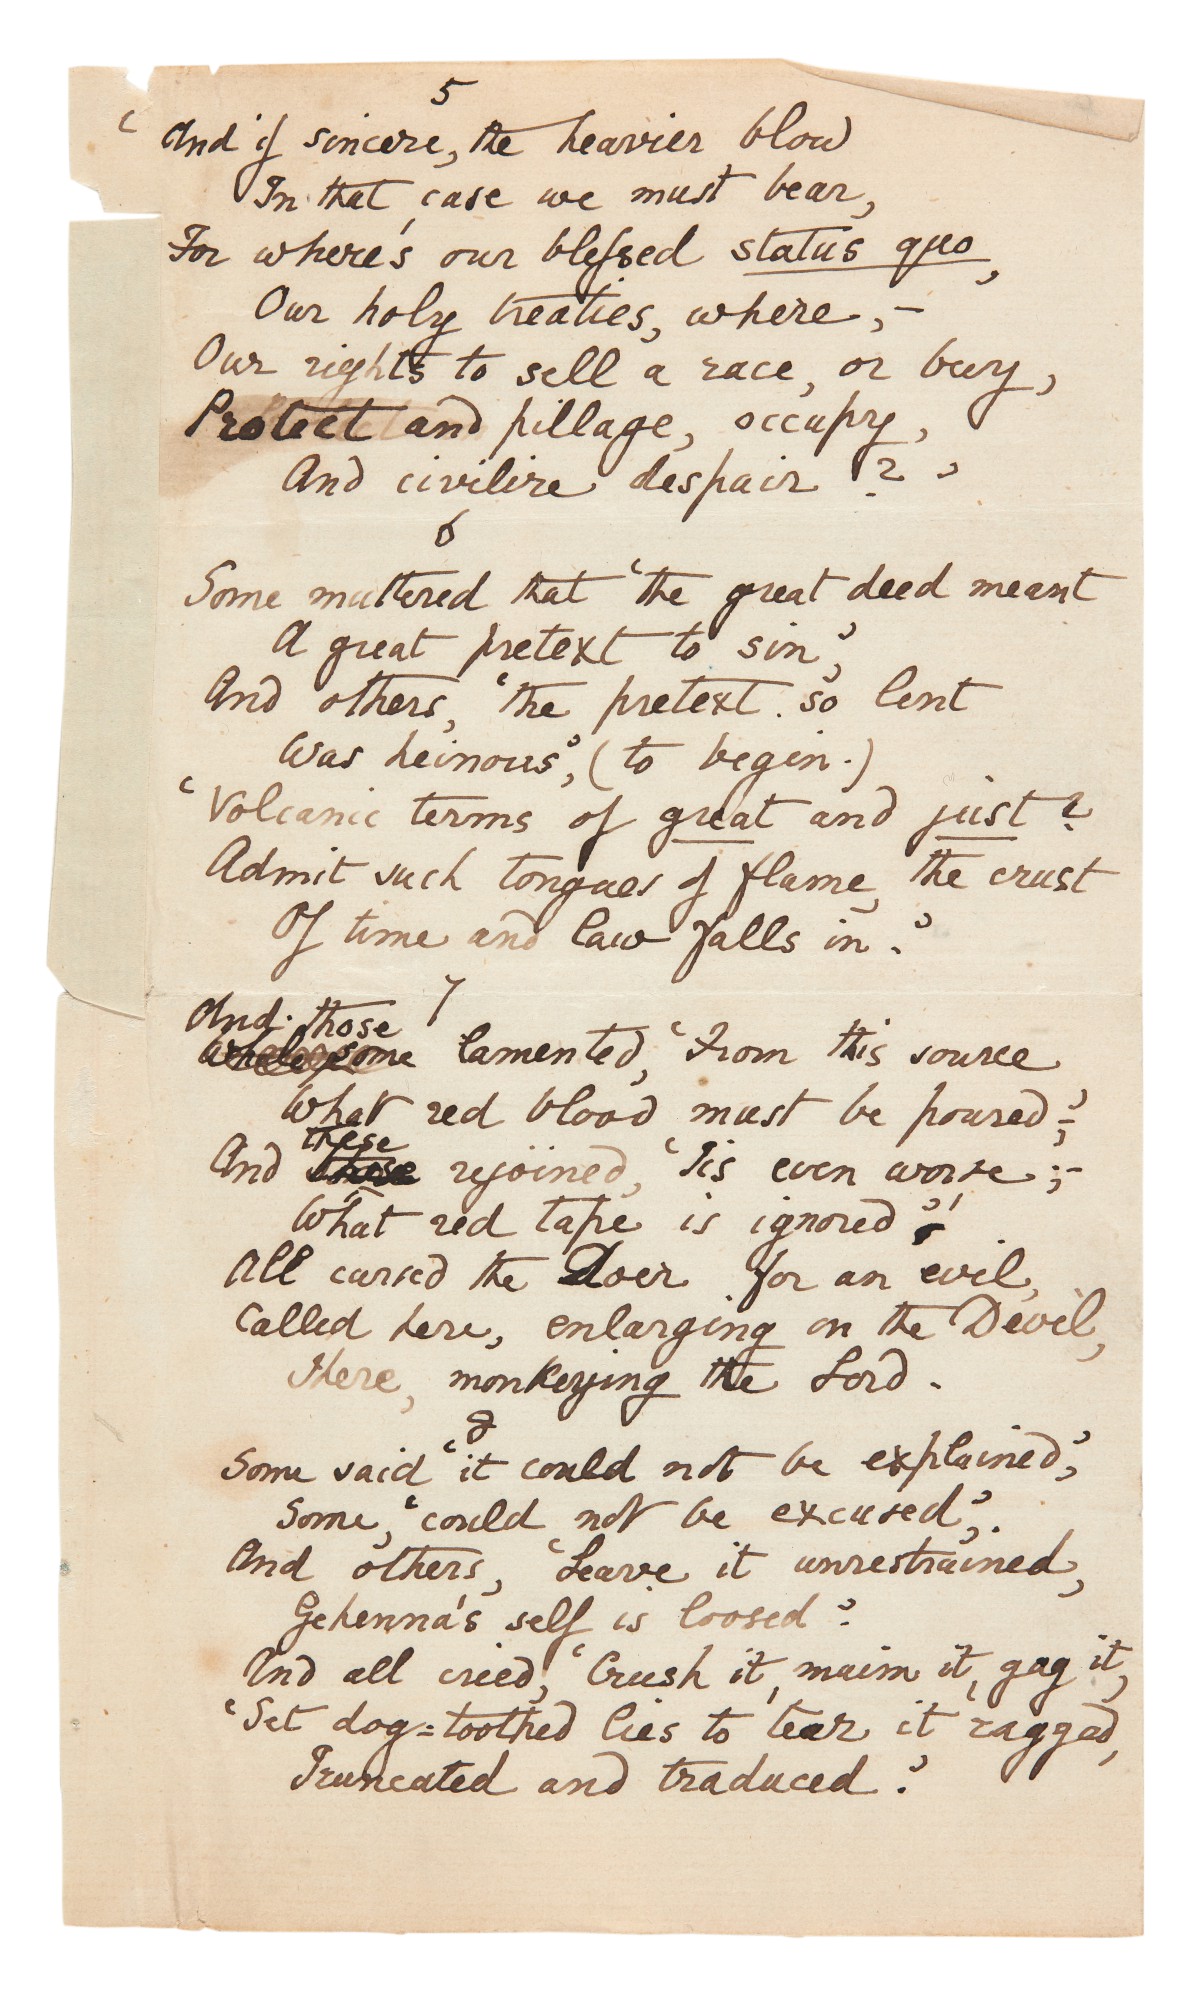 5
‘And if sincere, the heavier blow
In that case we must bear,
For where's our blessed status quo,
Our holy treaties, where,–
Our rights to sell a race, or buy,
Protect and pillage, occupy,
And civilize despair?’
6
Some muttered that ‘the great deed meant
A great pretext to sin’,
And others, ‘the pretext so lent
Was heinous’, (to begin.)
‘Volcanic terms of great and just?
Admit such tongues of flame, the crust
Of time and law falls in.’
7
And those
lamented, ‘From this source
What red blood must be poured’;
these
And rejoined, ‘'Tis even worse;–
What red tape is ignored’!
All cursed the Doer for an evil,
Called here, enlarging on the Devil,
There, monkeying the Lord.
8
Some said ‘it could not be explained’,
Some, ‘could not be excused’,.
And others, ‘Leave it unrestrained,
Gehenna's self is loosed’.
And all cried, ‘Crush it, maim it, gag it,
‘Set dog=toothed lies to tear it ragged,
Truncated and traduced.’